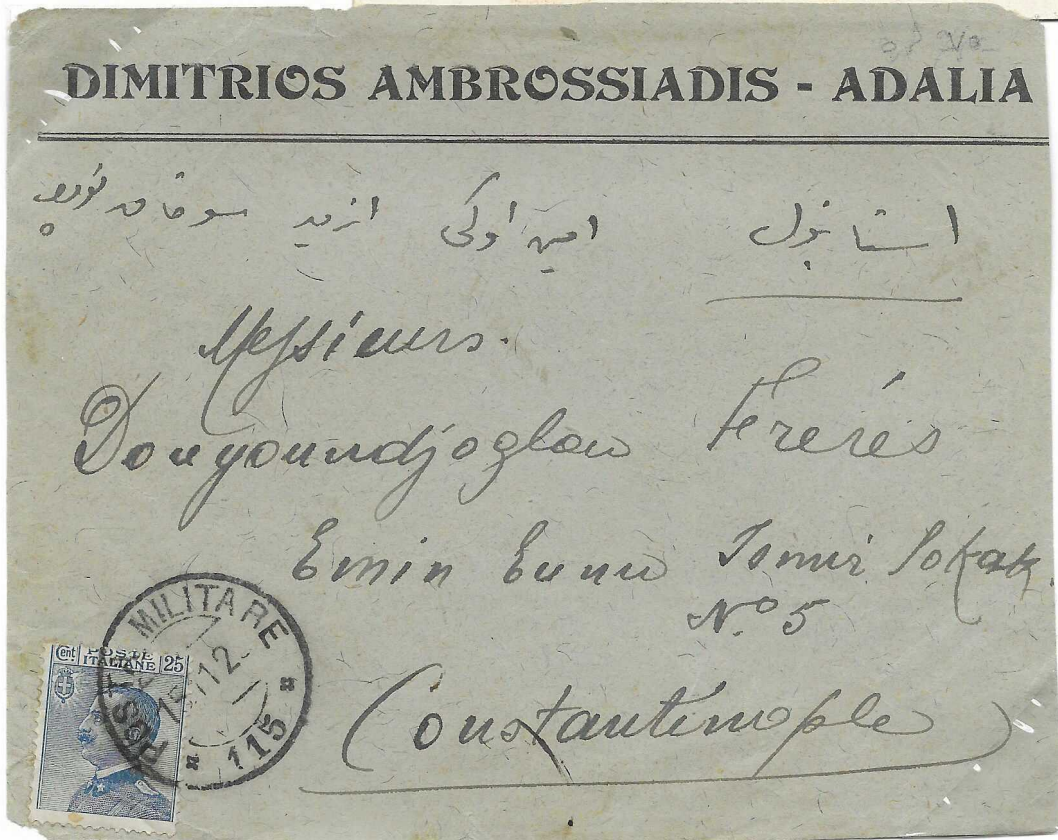 DIMITRIOS AMBROSSIADIS - ADALIA
استانبول امين اوكى ازمير سوقاق نومرو ٥
Messieurs.
Douyoundjoglou Frerés
Emin Eunu Ismir Sokak
No 5
Constantinople
POSTA MILITARE
12
115
Cent POSTE ITALIANE 25